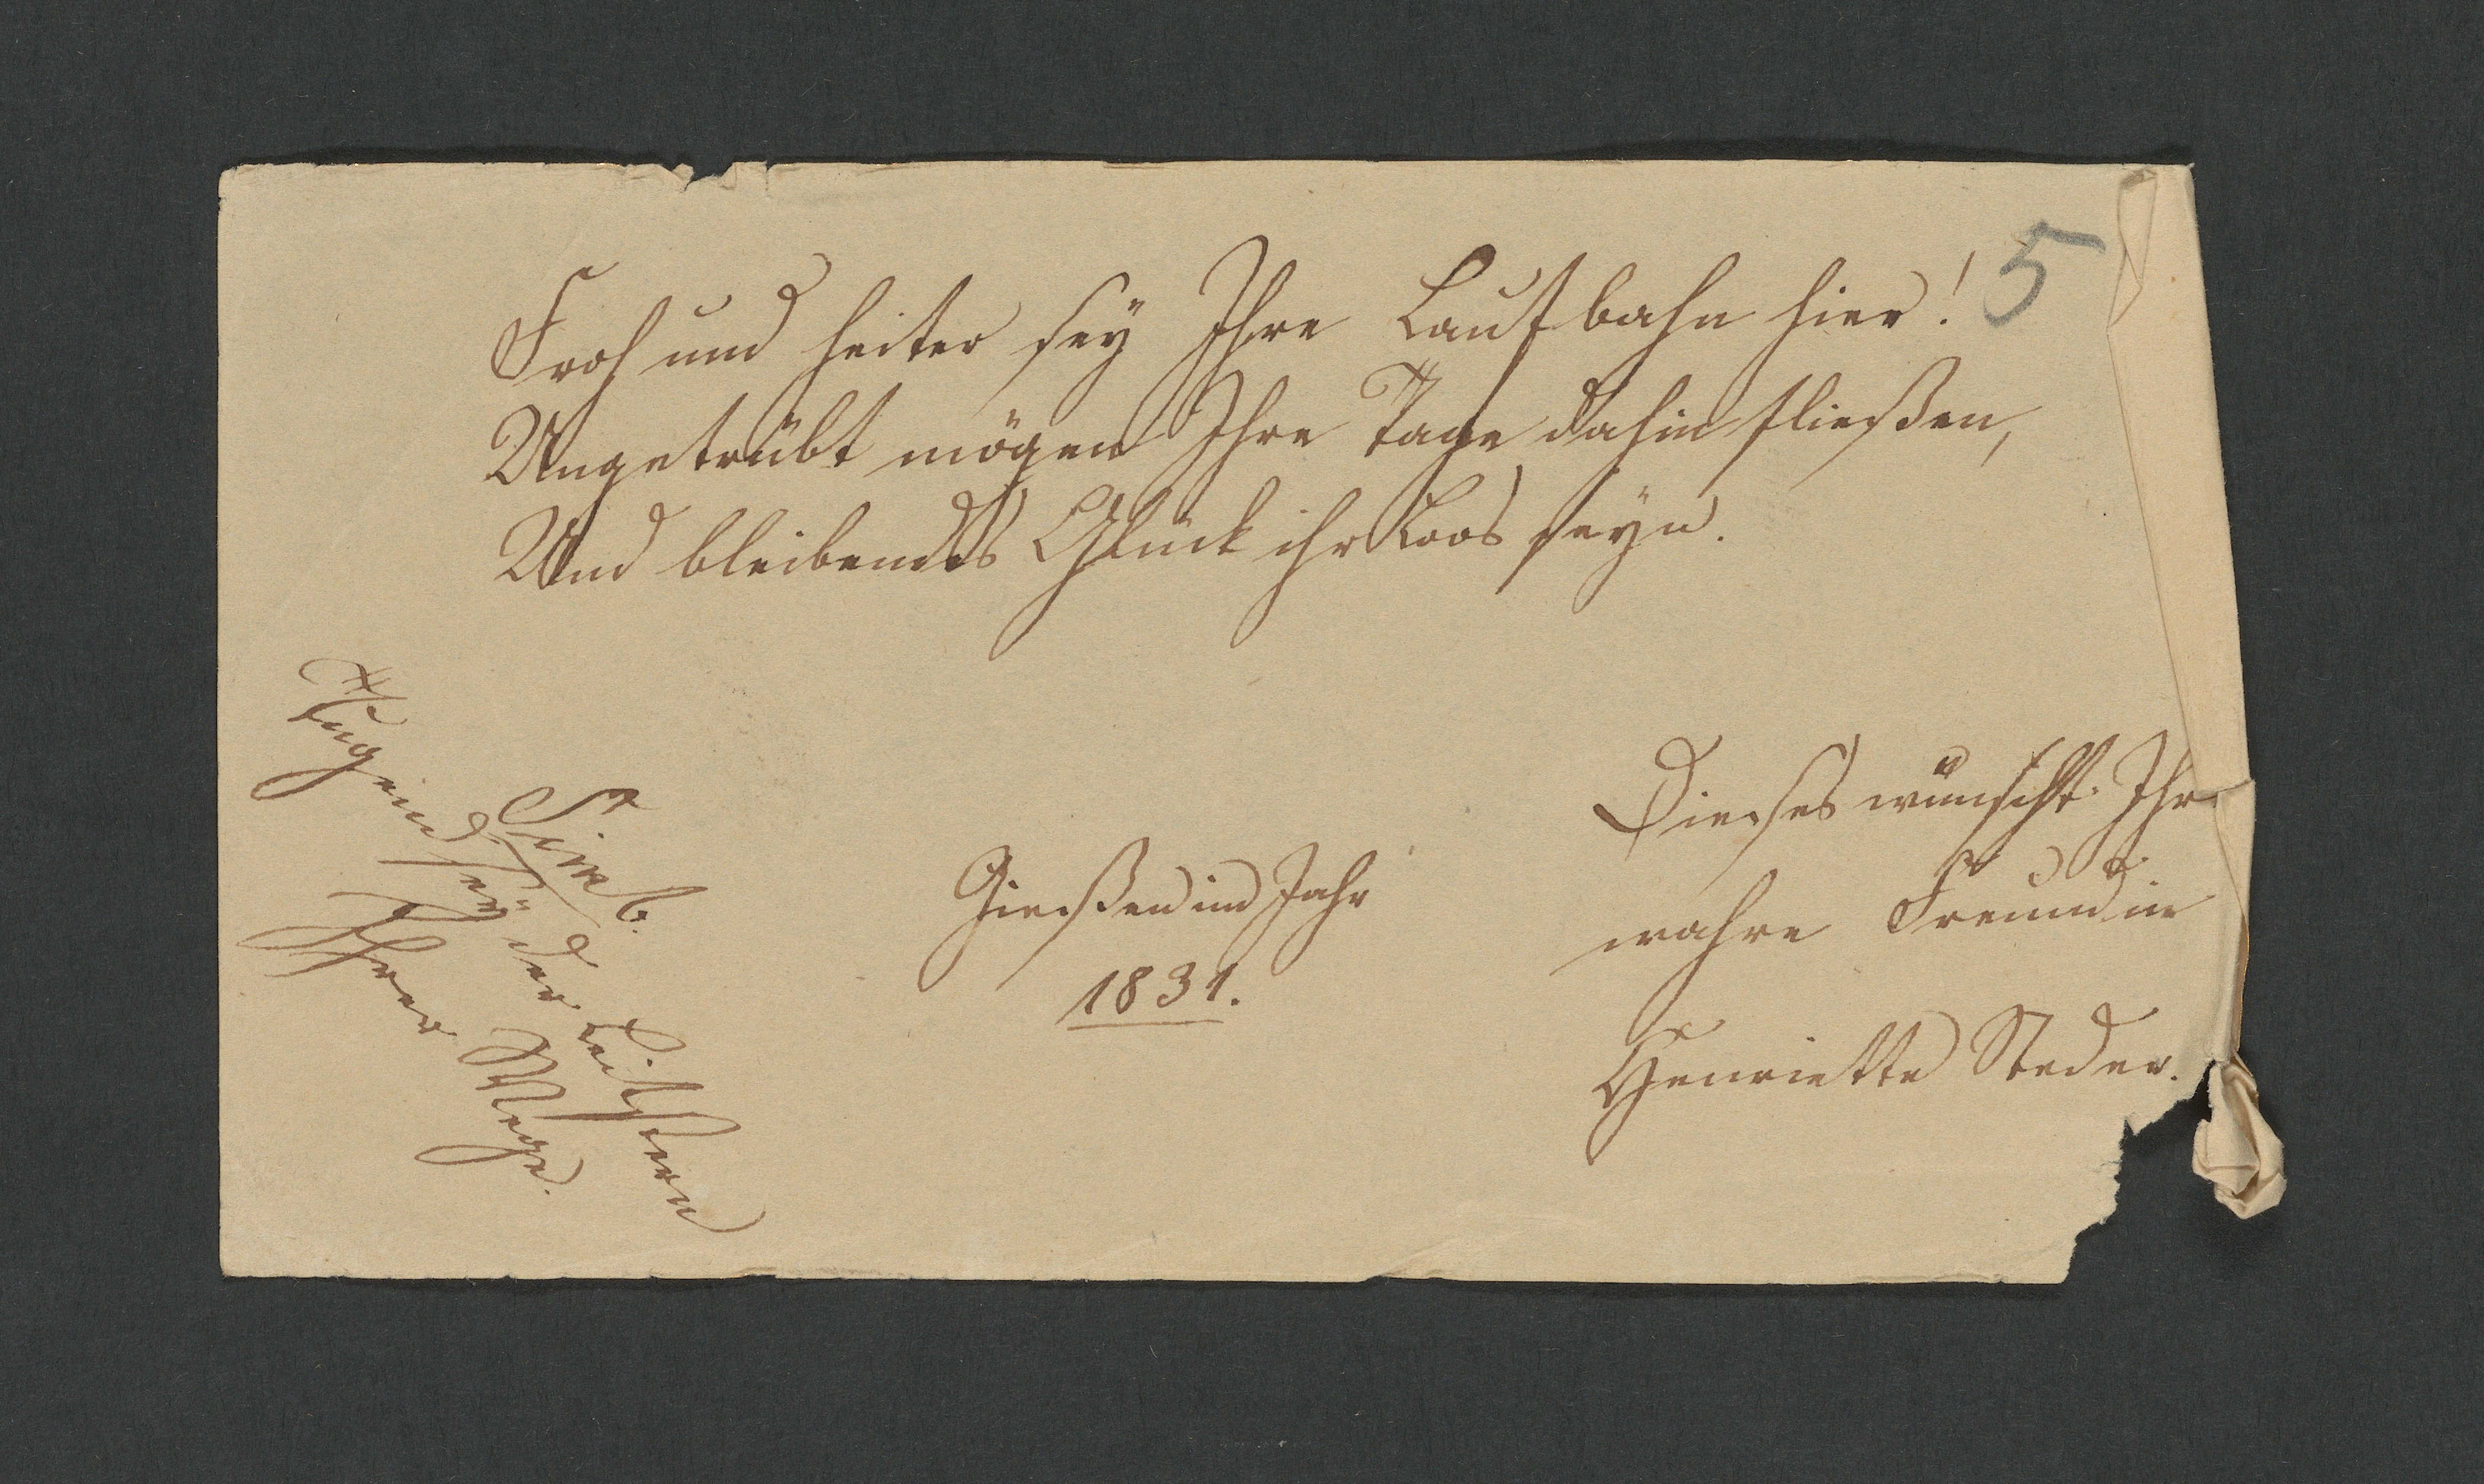 Froh und heiter sey Ihre Laufbahn hier!
5
Ungetrübt mögen Ihre Tage dahin fließen,
Und bleibendes Glück ihr Loos seyn.
Simb.
Tugend sey der Leitstern
Ihrer Wege.
Gießen im Jahr
1831.
Dieses wünscht Ihre
wahre Freundin
Henriette Steder.